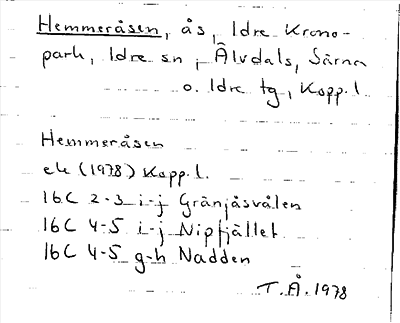 Hemmeråsen, ås, Idre Krono-
park, Idre sn, Älvdals, Särna
o. Idre tg, Kopp.l.
Hemmeråsen
ek (1978) Kopp.l.
16C 2-3 i-j Gränjåsvålen
16C 4-5 i-j Nipfjället
16C 4-5 g-h Nadden
T.Å. 1978